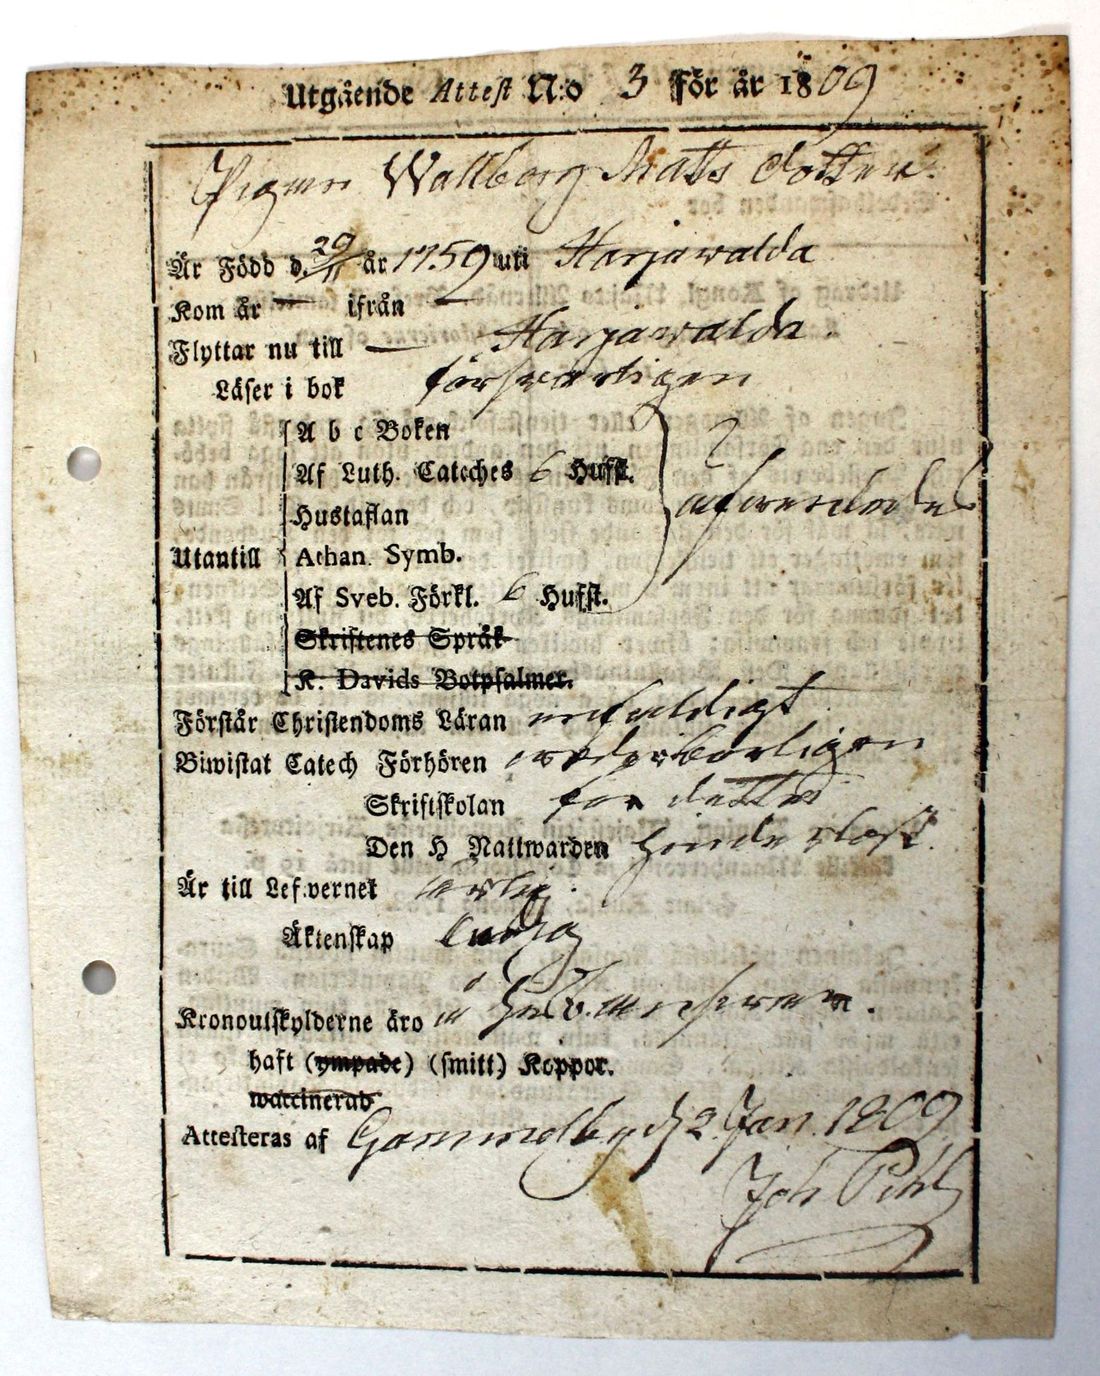 Utgående Attest N:o 3 för år 1809
Pigan Wallborg Matts Dotter.
Är Född d. 29/11 år 1759 uti Harjawalda
Kom år — ifrån —
Flyttar nu till — Harjawalda.
Läser i bok försvarligen
A b c Boken
Af Luth. Cateches 6 Hufst.
Hustaflan
Utantill Athan. Symb.
Af Sveb. Förkl. 6 Hufst.
Skriftenes Språk
K. Davids Botpsalmer.
Förstår Christendoms Läran enfaldigt
Biwistat Catech Förhören wederbörligen
Skriftskolan för detta
Den H Nattwarden hinderlöst.
Är till Lefvernet ärlig.
Äktenskap ledig
Kronoutskylderne äro
haft (ympade) (smitt) Koppor.
waccinerad
Attesteras af Gammelby d. 2 Jan. 1809.
Joh Pihl